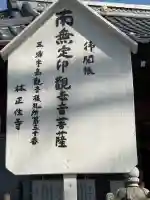 御開帳
南無定印観世音菩薩
三浦半島観音札所第三十番
林正住寺